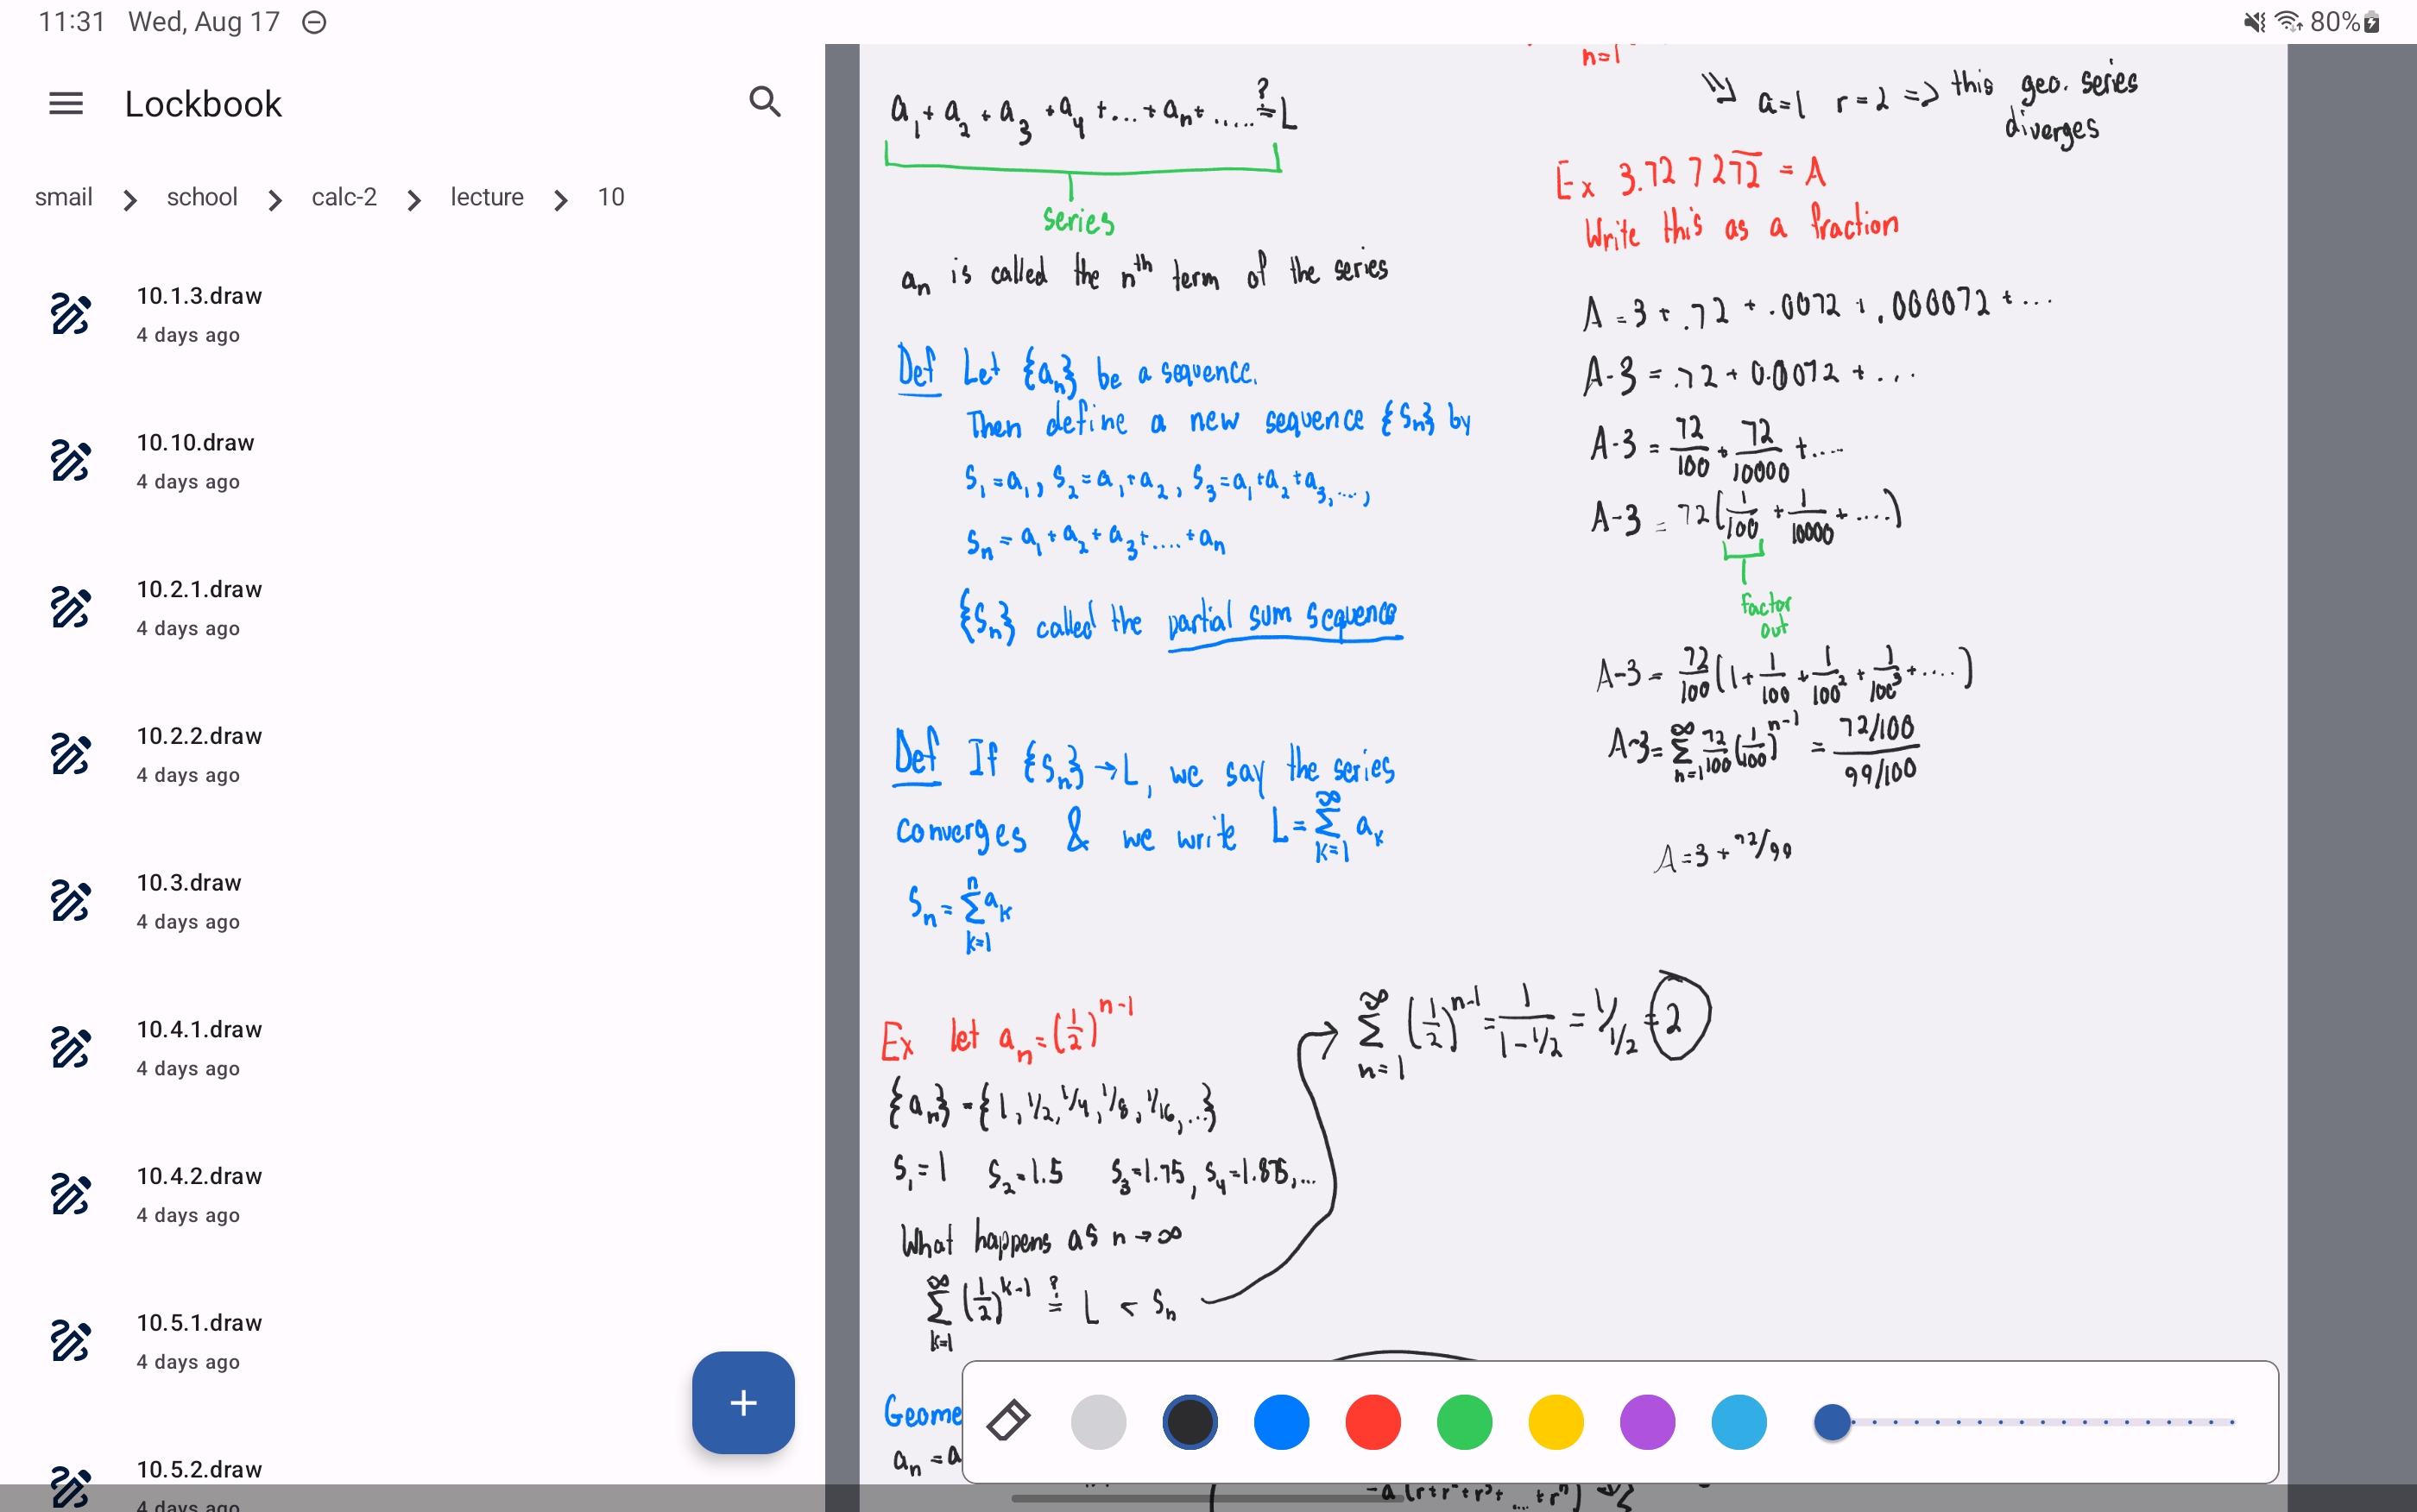 11:31 Wed, Aug 17
80%
Lockbook
smail > school > calc-2 > lecture > 10
10.1.3.draw
4 days ago
10.10.draw
4 days ago
10.2.1.draw
4 days ago
10.2.2.draw
4 days ago
10.3.draw
4 days ago
10.4.1.draw
4 days ago
10.4.2.draw
4 days ago
10.5.1.draw
4 days ago
10.5.2.draw
4 days ago
+
a₁ + a₂ + a₃ + a₄ + ... + aₙ + ..... ≟ L
series
aₙ is called the nᵗʰ term of the series
Def Let {aₙ} be a sequence.
Then define a new sequence {Sₙ} by
S₁ = a₁, S₂ = a₁ + a₂, S₃ = a₁ + a₂ + a₃, ...,
Sₙ = a₁ + a₂ + a₃ + .... + aₙ
{Sₙ} called the partial sum sequence
Def If {Sₙ} → L, we say the series
converges & we write L = ∑_{k=1}^{∞} aₖ
Sₙ = ∑_{k=1}^{n} aₖ
Ex let aₙ = (1/2)^{n-1}
{aₙ} = {1, 1/2, 1/4, 1/8, 1/16, ...}
S₁ = 1 S₂ = 1.5 S₃ = 1.75, S₄ = 1.875, ...
What happens as n → ∞
∑_{k=1}^{∞} (1/2)^{k-1} ≟ L < Sₙ
∑_{n=1}^{∞} (1/2)^{n-1} = 1/(1 - 1/2) = 1/(1/2) = 2
Geome
aₙ = a
n=1
a=1 r=2 => this geo. series
diverges
Ex 3.727272 = A
Write this as a fraction
A = 3 + .72 + .0072 + .000072 + ...
A-3 = .72 + 0.0072 + ...
A-3 = 72/100 + 72/10000 + ....
A-3 = 72(1/100 + 1/10000 + ....)
factor
out
A-3 = 72/100 (1 + 1/100 + 1/100² + 1/100³ + ....)
A-3 = ∑_{n=1}^{∞} 72/100 (1/100)^{n-1} = (72/100)/(99/100)
A = 3 + 72/99
-a(r+r²+r³+...+rⁿ)